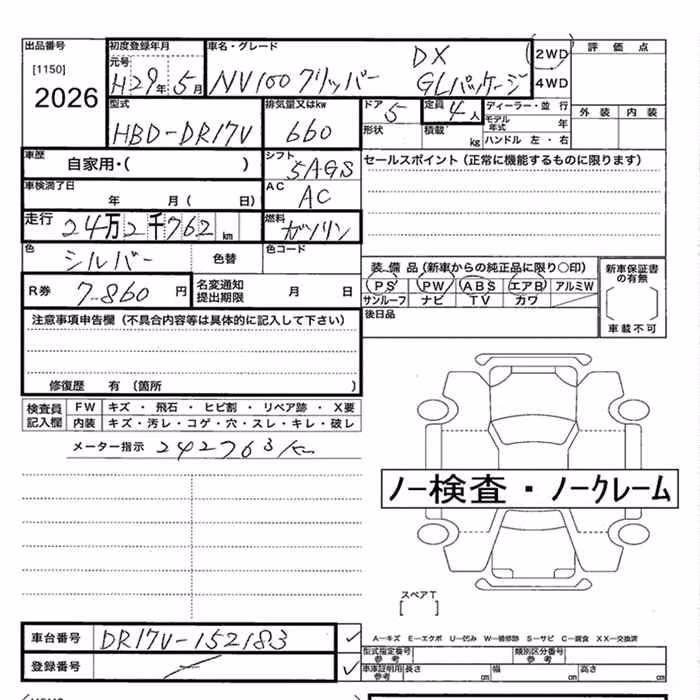 出品番号 初度登録年月 車名・グレード 評価点
[1150] 元号 H29年5月 NV100クリッパー DX GLパッケージ 2WD 4WD
2026
型式 HBD-DR17V 排気量又はkw 660 ドア 5 定員 4人 ディーラー・並行 外装 内装
形状 積載 kg モデル年式 年
ハンドル 左・右
車歴 自家用・( ) シフト 5AGS セールスポイント(正常に機能するものに限ります)
車検満了日 年 月( 日) AC AC
走行 24万2千762km 燃料 ガソリン
色 シルバー 色替 色コード
装備品(新車からの純正品に限り○印) 新車保証書の有無
R券 7-860円 名変通知提出期限 月 日 PS PW ABS エアB アルミW
サンルーフ ナビ TV カワ
後日品 車載不可
注意事項申告欄(不具合内容等は具体的に記入して下さい)
修復歴 有(箇所 )
検査員記入欄 FW キズ・飛石・ヒビ割・リペア跡・X要
内装 キズ・汚レ・コゲ・穴・スレ・キレ・破レ
メーター指示 242763km
ノー検査・ノークレーム
スペアT
[ ]
車台番号 DR17V-152183 ✓ A―キズ E―エクボ U―凹み W―補修跡 S―サビ C―腐食 XX―交換済
型式指定番号参考 類別区分番号参考
登録番号 ― ✓ 車庫証明用参考 長さ cm 幅 cm 高さ cm